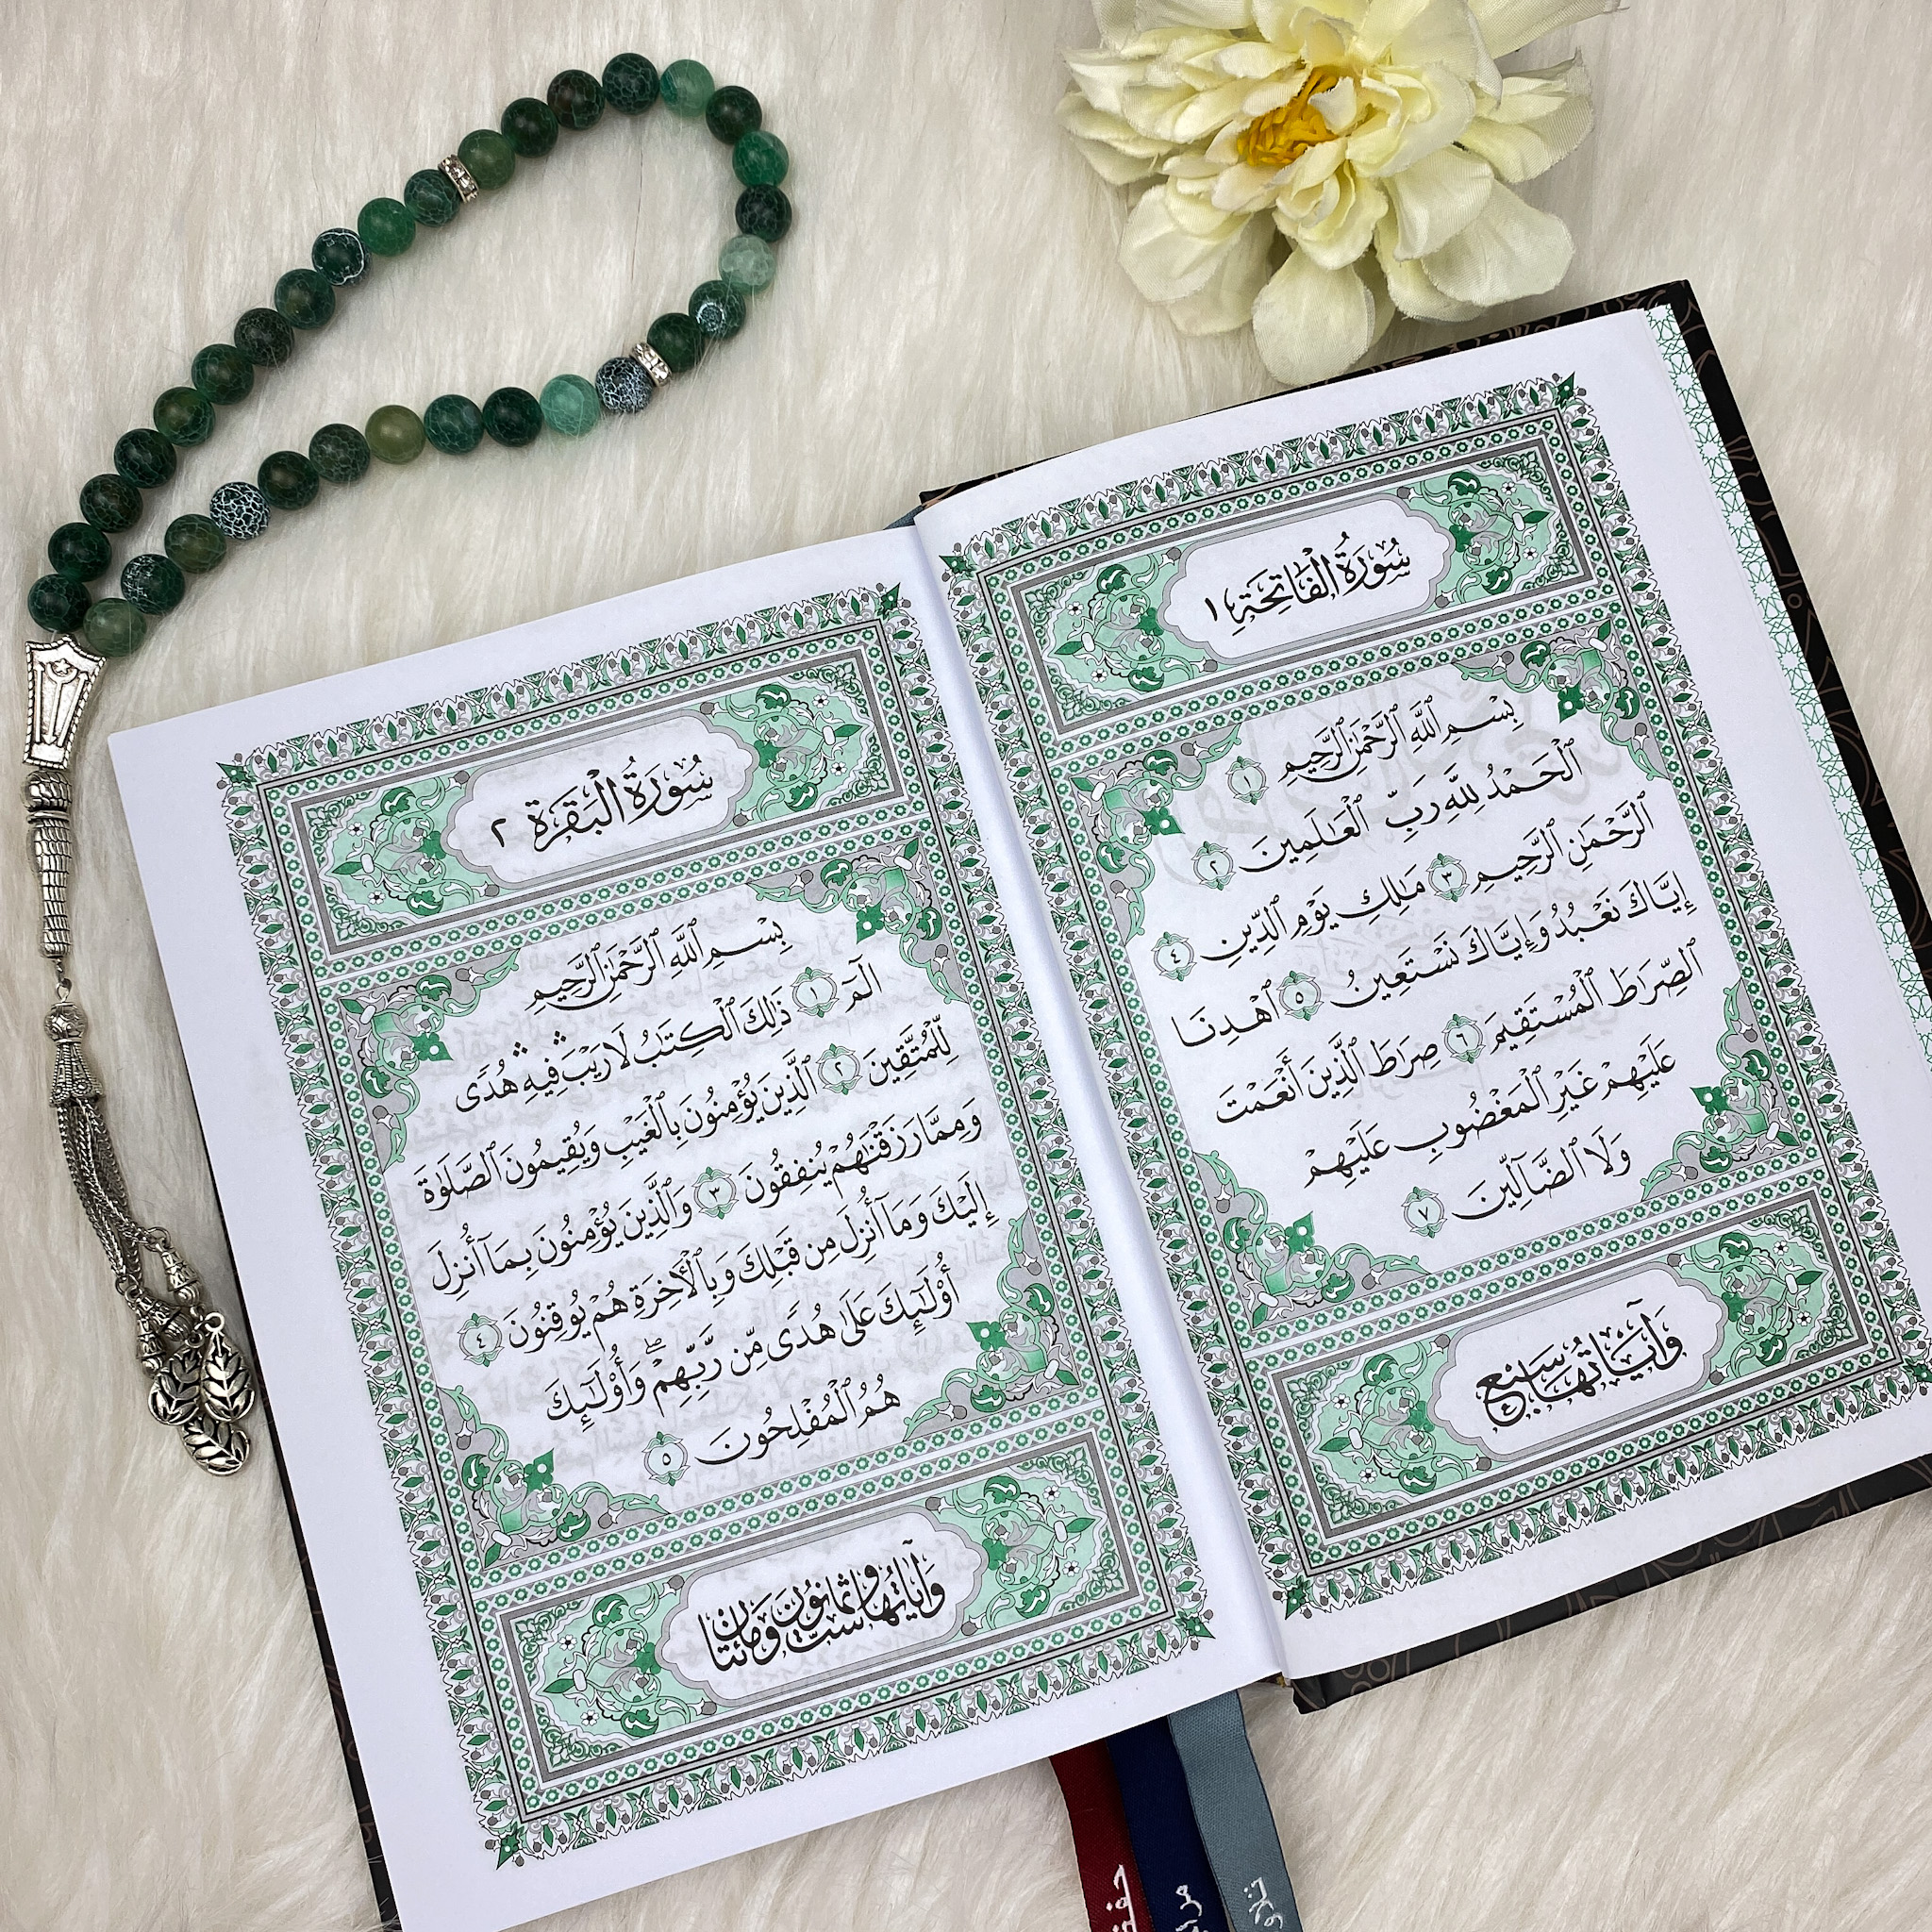 سُورَةُ الْفَاتِحَةِ ١
بِسْمِ ٱللَّهِ ٱلرَّحْمَٰنِ ٱلرَّحِيمِ ١
ٱلْحَمْدُ لِلَّهِ رَبِّ ٱلْعَٰلَمِينَ ٢
ٱلرَّحْمَٰنِ ٱلرَّحِيمِ ٣ مَٰلِكِ يَوْمِ ٱلدِّينِ ٤
إِيَّاكَ نَعْبُدُ وَإِيَّاكَ نَسْتَعِينُ ٥ ٱهْدِنَا
ٱلصِّرَٰطَ ٱلْمُسْتَقِيمَ ٦ صِرَٰطَ ٱلَّذِينَ أَنْعَمْتَ
عَلَيْهِمْ غَيْرِ ٱلْمَغْضُوبِ عَلَيْهِمْ
وَلَا ٱلضَّآلِّينَ ٧
وَآيَاتُهَا سَبْعٌ
سُورَةُ الْبَقَرَةِ ٢
بِسْمِ ٱللَّهِ ٱلرَّحْمَٰنِ ٱلرَّحِيمِ
الٓمٓ ١ ذَٰلِكَ ٱلْكِتَٰبُ لَا رَيْبَ ۛ فِيهِ ۛ هُدًى
لِّلْمُتَّقِينَ ٢ ٱلَّذِينَ يُؤْمِنُونَ بِٱلْغَيْبِ وَيُقِيمُونَ ٱلصَّلَوٰةَ
وَمِمَّا رَزَقْنَٰهُمْ يُنفِقُونَ ٣ وَٱلَّذِينَ يُؤْمِنُونَ بِمَآ أُنزِلَ
إِلَيْكَ وَمَآ أُنزِلَ مِن قَبْلِكَ وَبِٱلْءَاخِرَةِ هُمْ يُوقِنُونَ ٤
أُو۟لَٰٓئِكَ عَلَىٰ هُدًى مِّن رَّبِّهِمْ ۖ وَأُو۟لَٰٓئِكَ
هُمُ ٱلْمُفْلِحُونَ ٥
وَآيَاتُهَا سِتٌّ وَثَمَانُونَ وَمَائَتَانِ